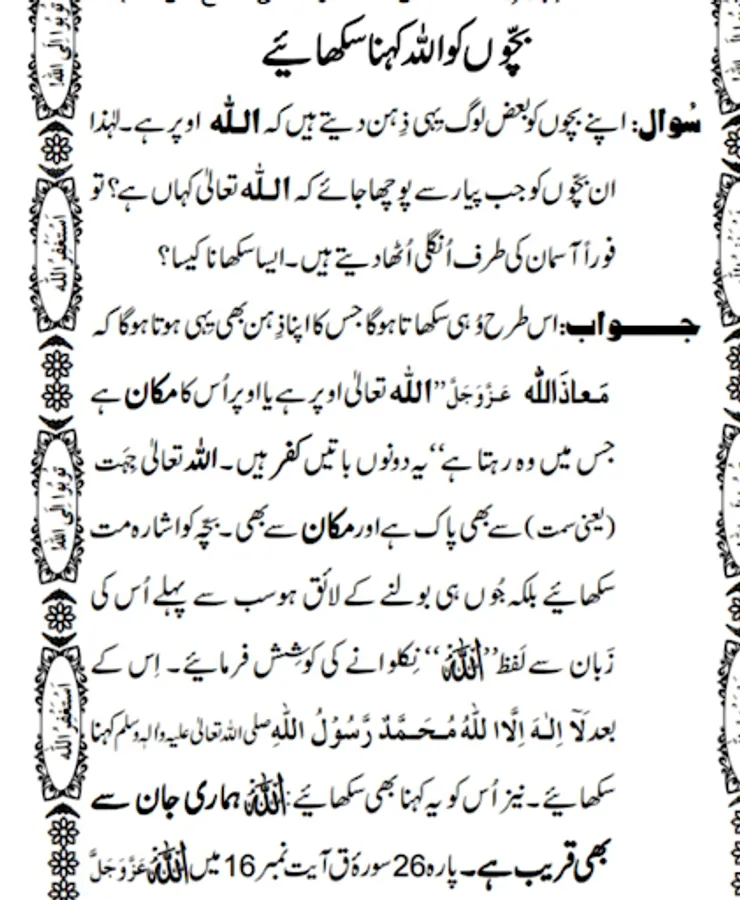 بچّوں کو اللہ کہنا سکھائیے
سُوال: اپنے بچوں کو بعض لوگ یہی ذِہن دیتے ہیں کہ اللہ اوپر ہے۔ لہٰذا
ان بچّوں کو جب پیار سے پوچھا جائے کہ اللہ تعالیٰ کہاں ہے؟ تو
فوراً آسمان کی طرف اُنگلی اُٹھا دیتے ہیں۔ ایسا سکھانا کیسا؟
جواب: اس طرح وُہی سکھاتا ہوگا جس کا اپنا ذِہن بھی یہی ہوتا ہوگا کہ
مَعاذَاللہ عَزَّوَجَلَّ ”اللہ تعالیٰ اوپر ہے یا اوپر اُس کا مکان ہے
جس میں وہ رہتا ہے“ یہ دونوں باتیں کفر ہیں۔ اللہ تعالیٰ جِہَت
(یعنی سمت) سے بھی پاک ہے اور مکان سے بھی۔ بچّہ کو اشارہ مت
سکھائیے بلکہ جُوں ہی بولنے کے لائق ہو سب سے پہلے اُس کی
زَبان سے لَفظ ”اَللّٰہُ“ نِکلوانے کی کوشِش فرمائیے۔ اِس کے
بعد لَآ اِلٰـہَ اِلَّا اللّٰہُ مُـحَمَّدٌ رَّسُوْلُ اللّٰہِ صلی اللہ تعالیٰ علیہ واٰلہٖ وسلم کہنا
سکھائیے۔ نیز اُس کو یہ کہنا بھی سکھائیے: اَللّٰہُ ہماری جان سے
بھی قریب ہے۔ پارہ 26 سورۂ ق آیت نمبر 16 میں اَللّٰہُ عَزَّوَجَلَّ
تُوبُوا اِلَی اللہ!
اَسْتَغْفِرُاللہ
تُوبُوا اِلَی اللہ!
اَسْتَغْفِرُاللہ